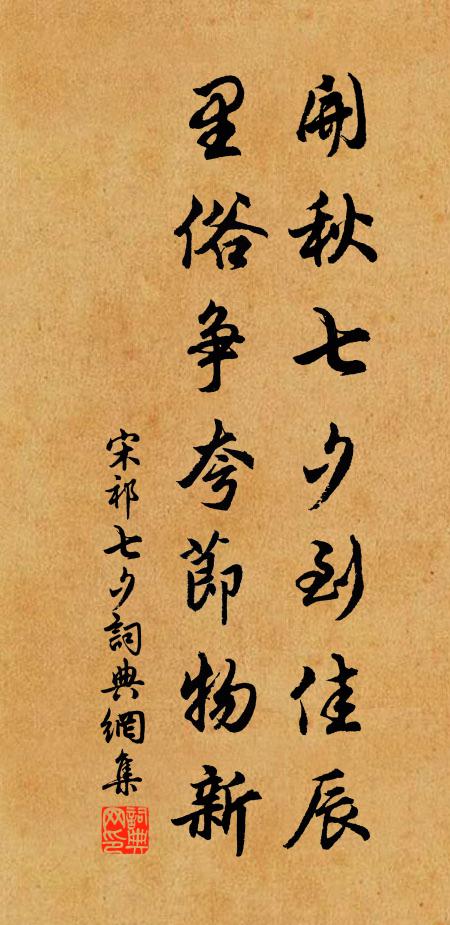 開秋七夕到佳辰
里俗争夸節物新
宋祁七夕詞典網集
詞典網印